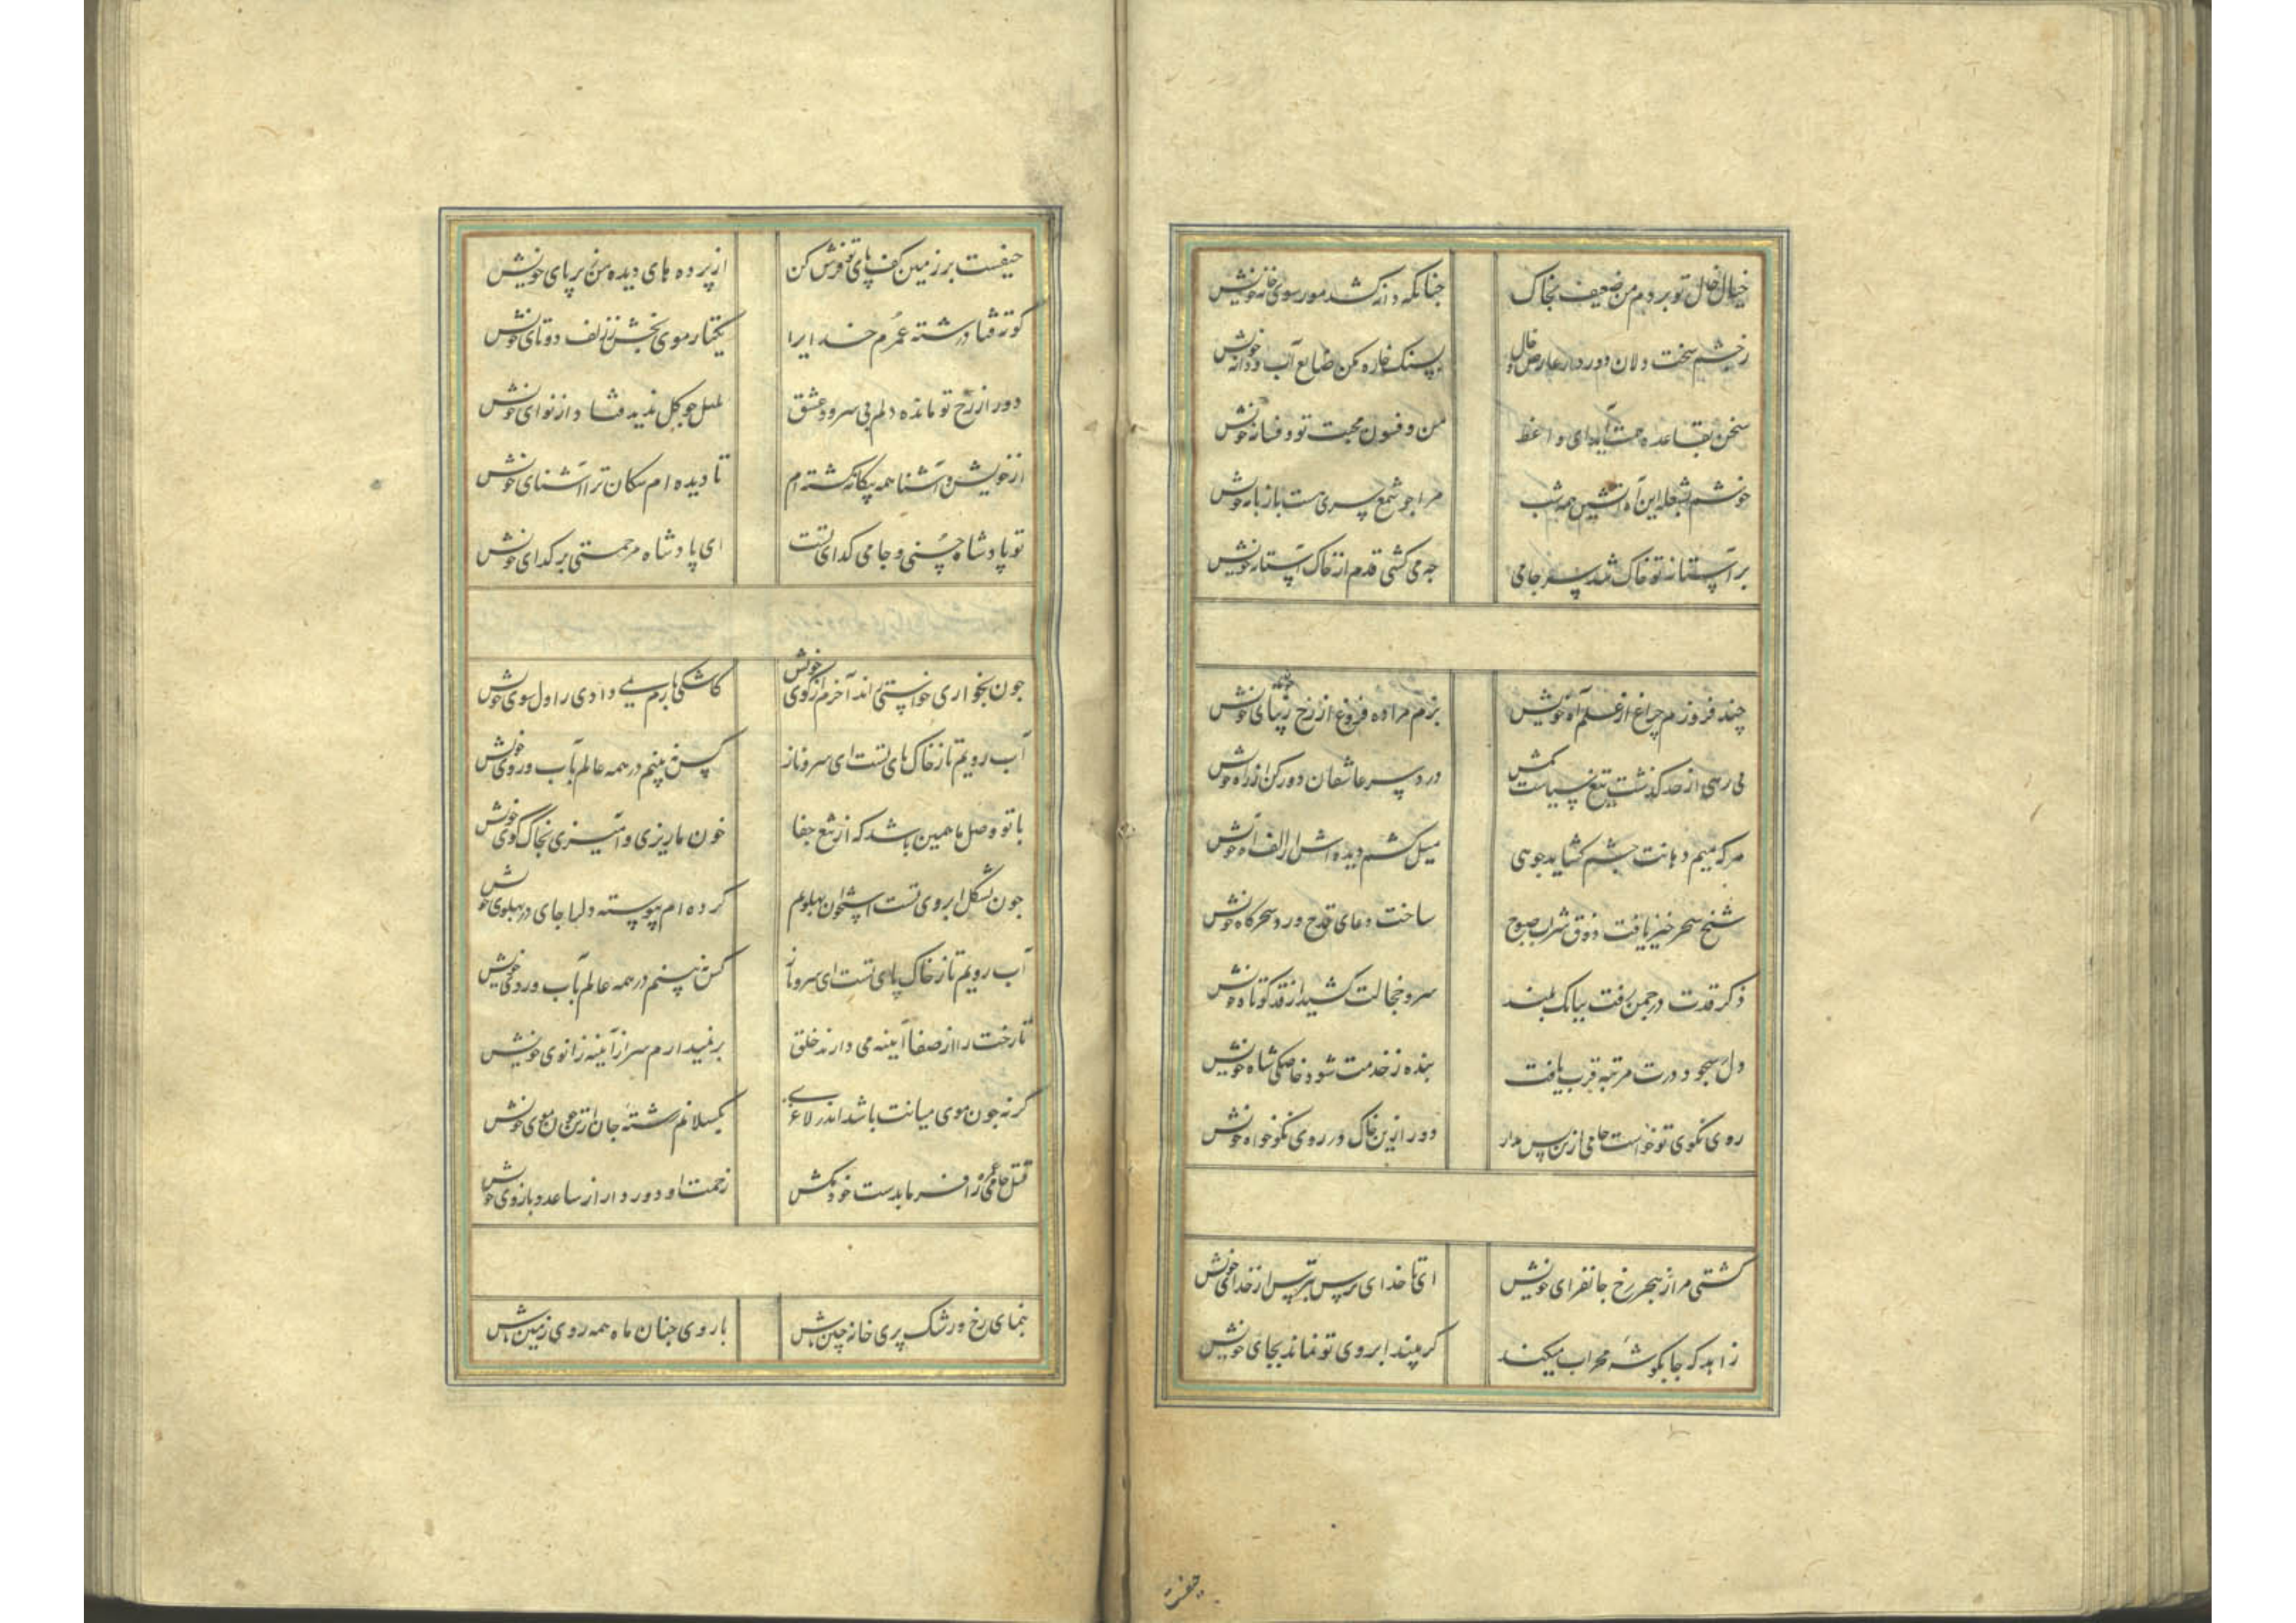 خیال خال تو بردم من ضعیف بخاک
جنانکه دانه کشد مور سوی خانه خویش
ز خشم سخت دلان دور دار عارض و خال
بسنک خاره مکن ضایع آب و دانه خویش
سخن بقاعده آید ای واعظ
من و فسون محبت تو و فسانه خویش
خوشم بشعله این آه آتشین همه شب
مرا جو شمع سری هست با زبانه خویش
بر آستانه تو خاک شد سر جامی
جه می کشی قدم از خاک آستانه خویش
چند فروزم چراغ از علم آه خویش
بزم مرا ده فروغ از رخ خویش
بی رهی از حد کذشت تیغ سیاست بکش
درد سر عاشقان دور کن از راه خویش
هر که بمیم دهانت چشم کشاید جو هی
میل کشم دیده اش از الف آه خویش
شیخ سحر خیز یافت ذوق شراب صبوح
ساخت دعای قدح ورد سحرکاه خویش
ذکر قدت در جمن رفت ببانک بلند
سرو خجالت کشید از قد کوتاه خویش
دل بسجود درت مرتبه قرب یافت
بنده ز خدمت شود خاصکی شاه خویش
روی نکوی تو خواست جامی ازین پس مدار
دور ازین خاک در روی نکو خواه خویش
کشتی مرا ز هجر رخ جانفزای خویش
ای ناخدای ترس بترس از خدای خویش
زاهد که جا بکوشه محراب میکند
کر بیند ابروی تو نماند بجای خویش
حیفست
حیفست بر زمین کف پای تو فرش کن
از پرده های دیده من زیر پای خویش
کوته فتاد رشته عمرم خدایرا
یکتار موی بخش ز زلف دوتای خویش
دور از رخ تو مانده دلم بی سرود عشق
بلبل جو کل ندید فتاد از نوای خویش
از خویش و آشنا همه بیکانه کشته ام
تا دیده ام سکان ترا آشنای خویش
تو پادشاه حسنی و جامی کدای تست
ای پادشاه مرحمتی بر کدای خویش
جون بخواری خواستی راند آخرم از کوی خویش
کاشکی بارم نمی دادی ز اول سوی خویش
آب رویم تا ز خاک پای تست ای سرو ناز
کس نه بینم در همه عالم بآب روی خویش
با تو وصل ما همین باشد که از تیغ جفا
خون ما ریزی و آمیزی بخاک کوی خویش
جون بشکل ابروی تست استخوان پهلوم
کرده ام پیوسته دلها جای در پهلوی خویش
آب رویم تا ز خاک پای تست ای سرو ناز
کس نه بینم در همه عالم بآب روی خویش
تا رخت را از صفا آیینه می دارند خلق
بر نمیدارم سر از آینه زانوی خویش
کر نه جون موی میانت باشد اندر لاغری
بکسلانم رشته جان از تن جون موی خویش
قتل جامی غمزه را فرما بدست خود مکش
زحمت او دور دار از ساعد و بازوی خویش
بنمای رخ و رشک پری خانه چین باش
با روی جنان ماه همه روی زمین باش